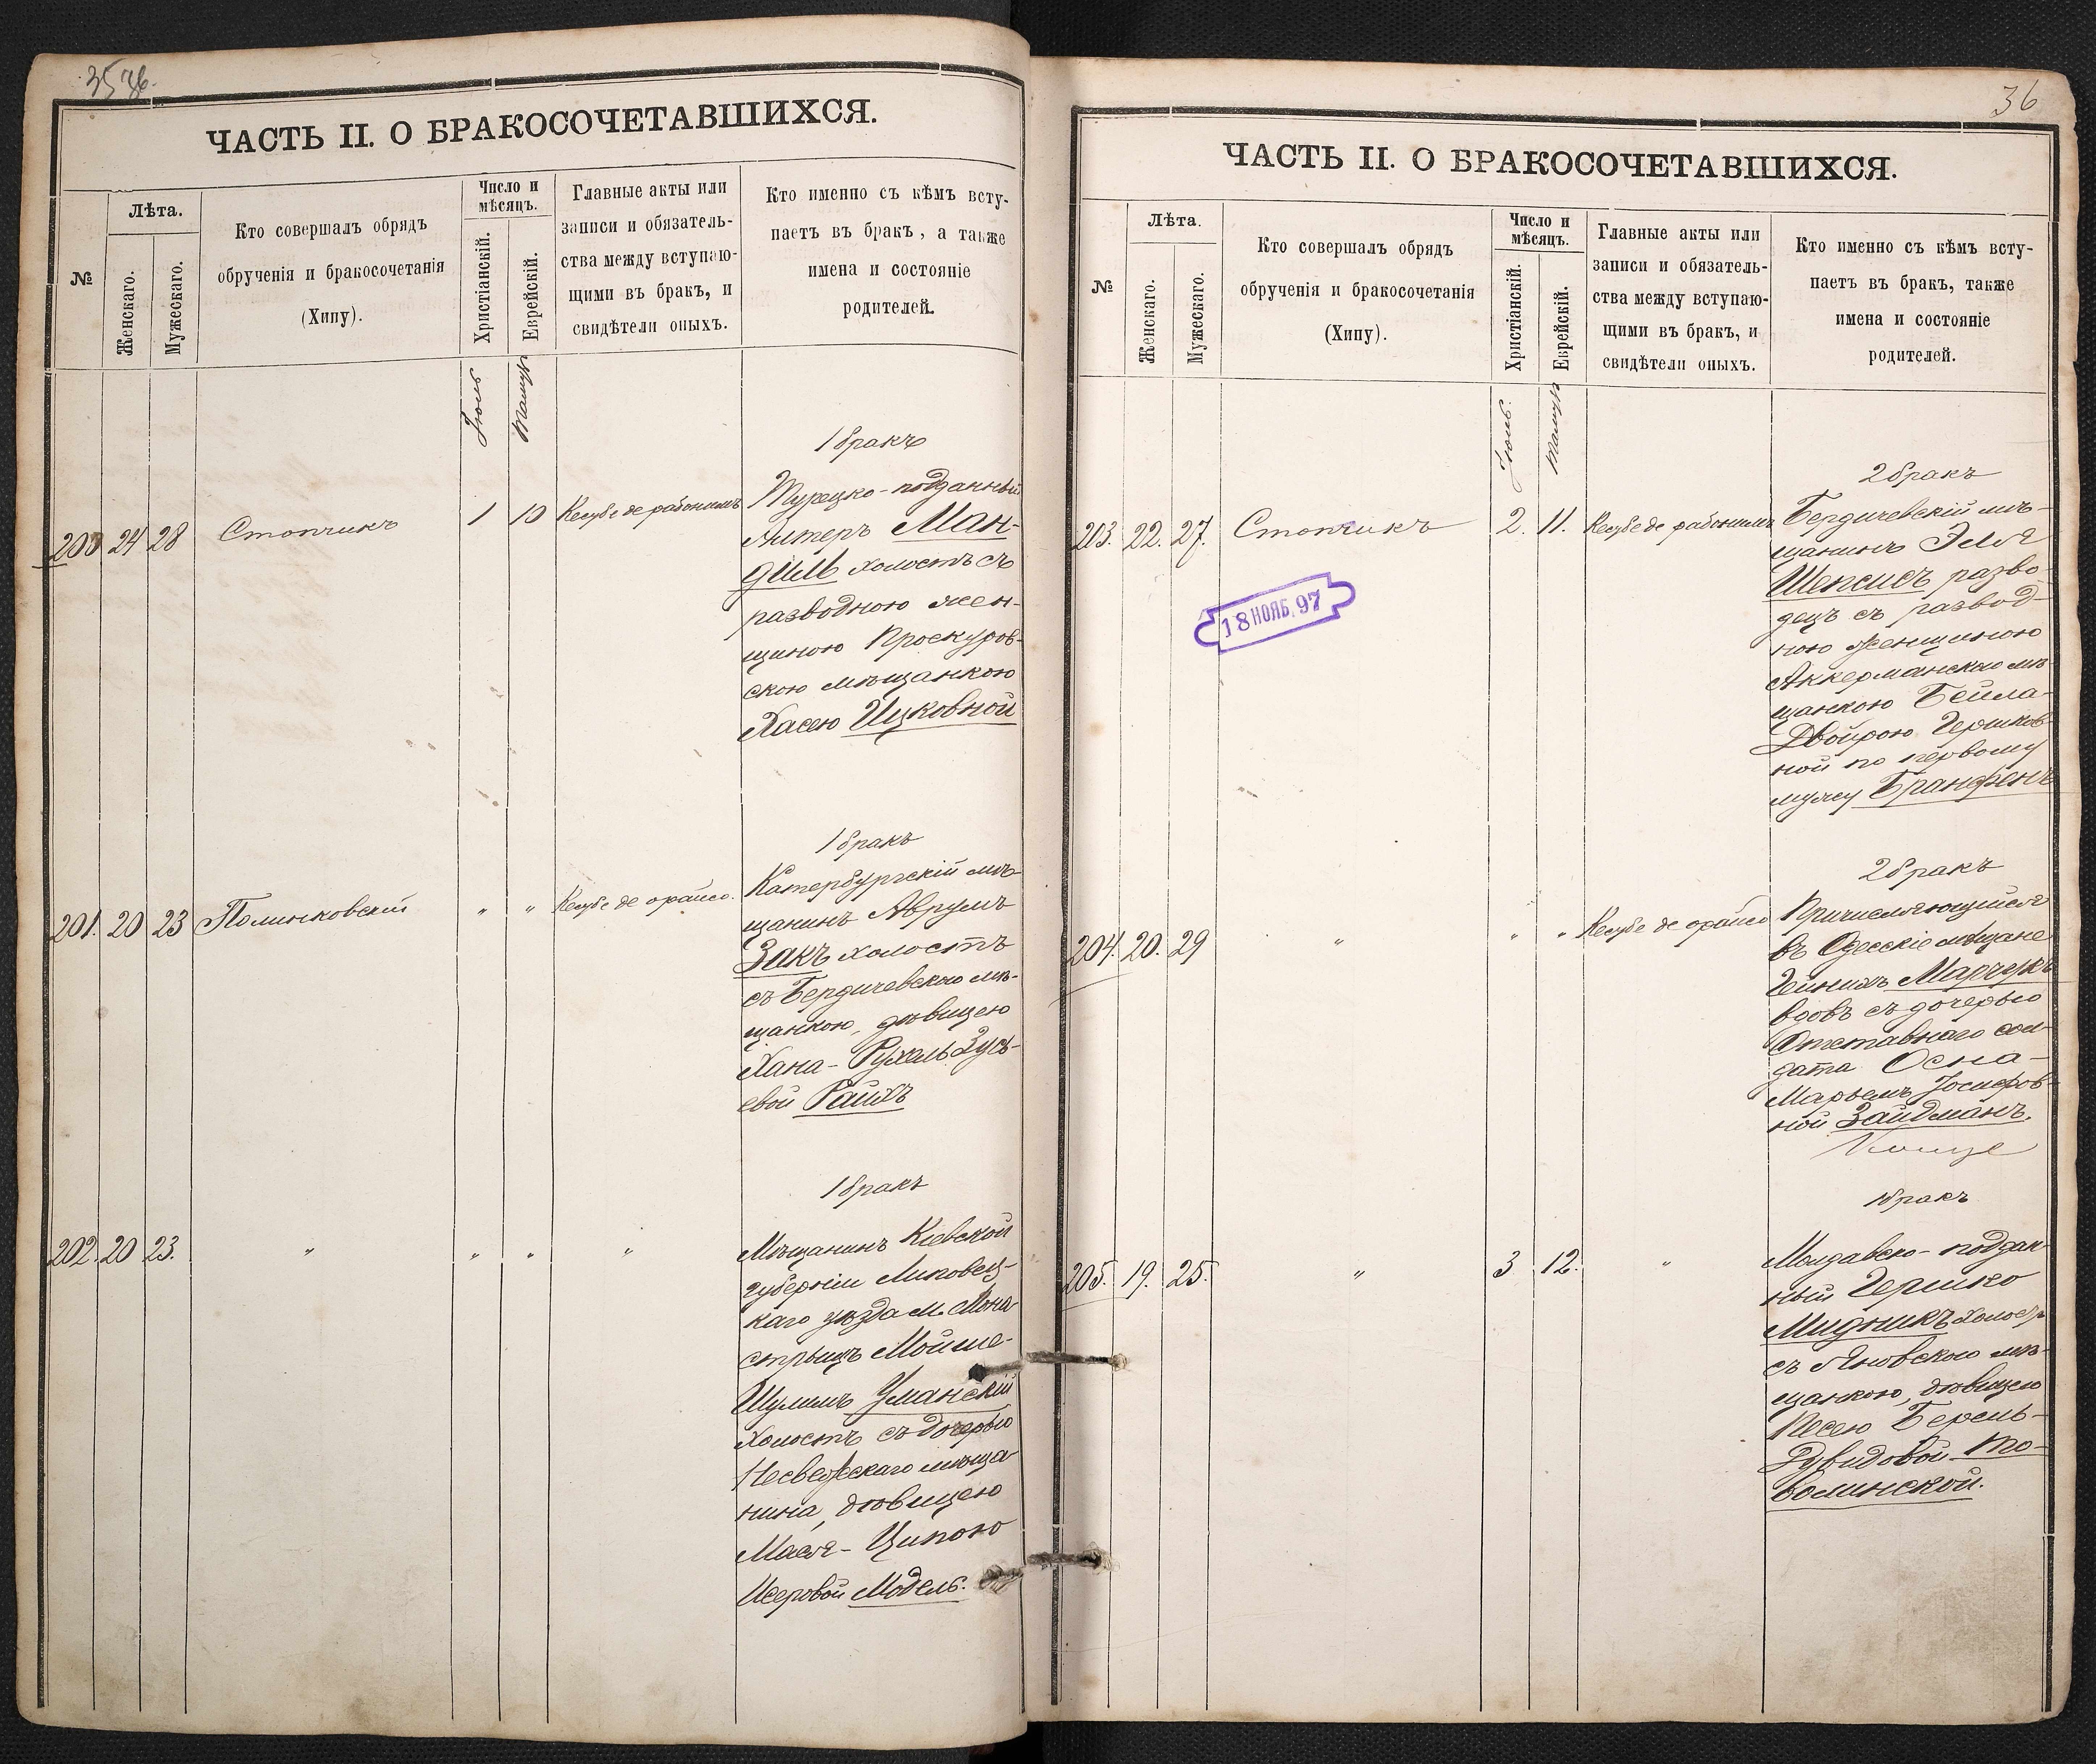 35 об.
ЧАСТЬ II. О БРАКОСОЧЕТАВШИХСЯ.
№
Лѣта.
Женскаго.
Мужескаго.
Кто совершалъ обрядъ
обрученія и бракосочетанія
(Хипу).
Число и
мѣсяцъ.
Христіанскій.
Еврейскій.
Главные акты или
записи и обязатель-
ства между вступаю-
щими въ бракъ, и
свидѣтели оныхъ.
Кто именно съ кѣмъ всту-
паетъ въ бракъ, а также
имена и состояніе
родителей.
Іюль
Тамузъ
200 24 28 Стопчикъ 1 10 Кесубе де рабонимъ
1 бракъ
Турецко-подданный
Литеръ Ман-
диль холостъ съ
разводною жен-
щиною Проскуров-
скою мѣщанкою
Хасею Ицковной
201. 20 23 Полинковскій " " Кесубе де орайсо.
1 бракъ
Катербургскій мѣ-
щанинъ Аврумъ
Закъ холостъ
съ Бердичевскою мѣ-
щанкою, дѣвицею
Хана-Рухель Зусь-
евой Райхъ
202. 20 23. " " " "
1 бракъ
Мѣщанинъ Кіевской
губерніи Липовец-
каго уѣзда м. Мона-
стрыщъ Мойше-
Шулимъ Уманскій
холостъ съ дочерью
Несвежскаго мѣща
нина, дѣвицею
Мася-Ципою
Исеровой Модель.
36
ЧАСТЬ II. О БРАКОСОЧЕТАВШИХСЯ.
№
Лѣта.
Женскаго.
Мужескаго.
Кто совершалъ обрядъ
обрученія и бракосочетанія
(Хипу).
Число и
мѣсяцъ.
Христіанскій.
Еврейскій.
Главные акты или
записи и обязатель-
ства между вступаю-
щими въ бракъ, и
свидѣтели оныхъ.
Кто именно съ кѣмъ всту-
паетъ въ бракъ, также
имена и состояніе
родителей.
Іюль.
Тамузъ
203. 22. 27. Стопчикъ 2. 11. Кесубе де рабонимъ
2 бракъ
Бердичевскій мѣ-
щанинъ Эля
Шепсисъ разво-
децъ съ развод-
ною женщиною
Аккерманскою мѣ-
щанкою Бейла-
Двойрою Гершков-
ной по первому
мужу Бранфенъ
18 НОЯБ. 97
204. 20. 29 " " " Кесубе де орайсо
2 бракъ
Причисляющійся
въ Одесскіе мѣщане
Гейнихъ
вдовъ съ дочерью
Отставнаго сол-
дата Осна-
Марьемъ Іосифов-
ной Зайдманъ.
205. 19. 25. " 3 12. "
1 бракъ
Молдавско-поддан
ный Гершко
Мидникъ холостъ
съ Яновскою мѣ-
щанкою, дѣвицею
Песею Берель-
Дувидовой То-
волинской.